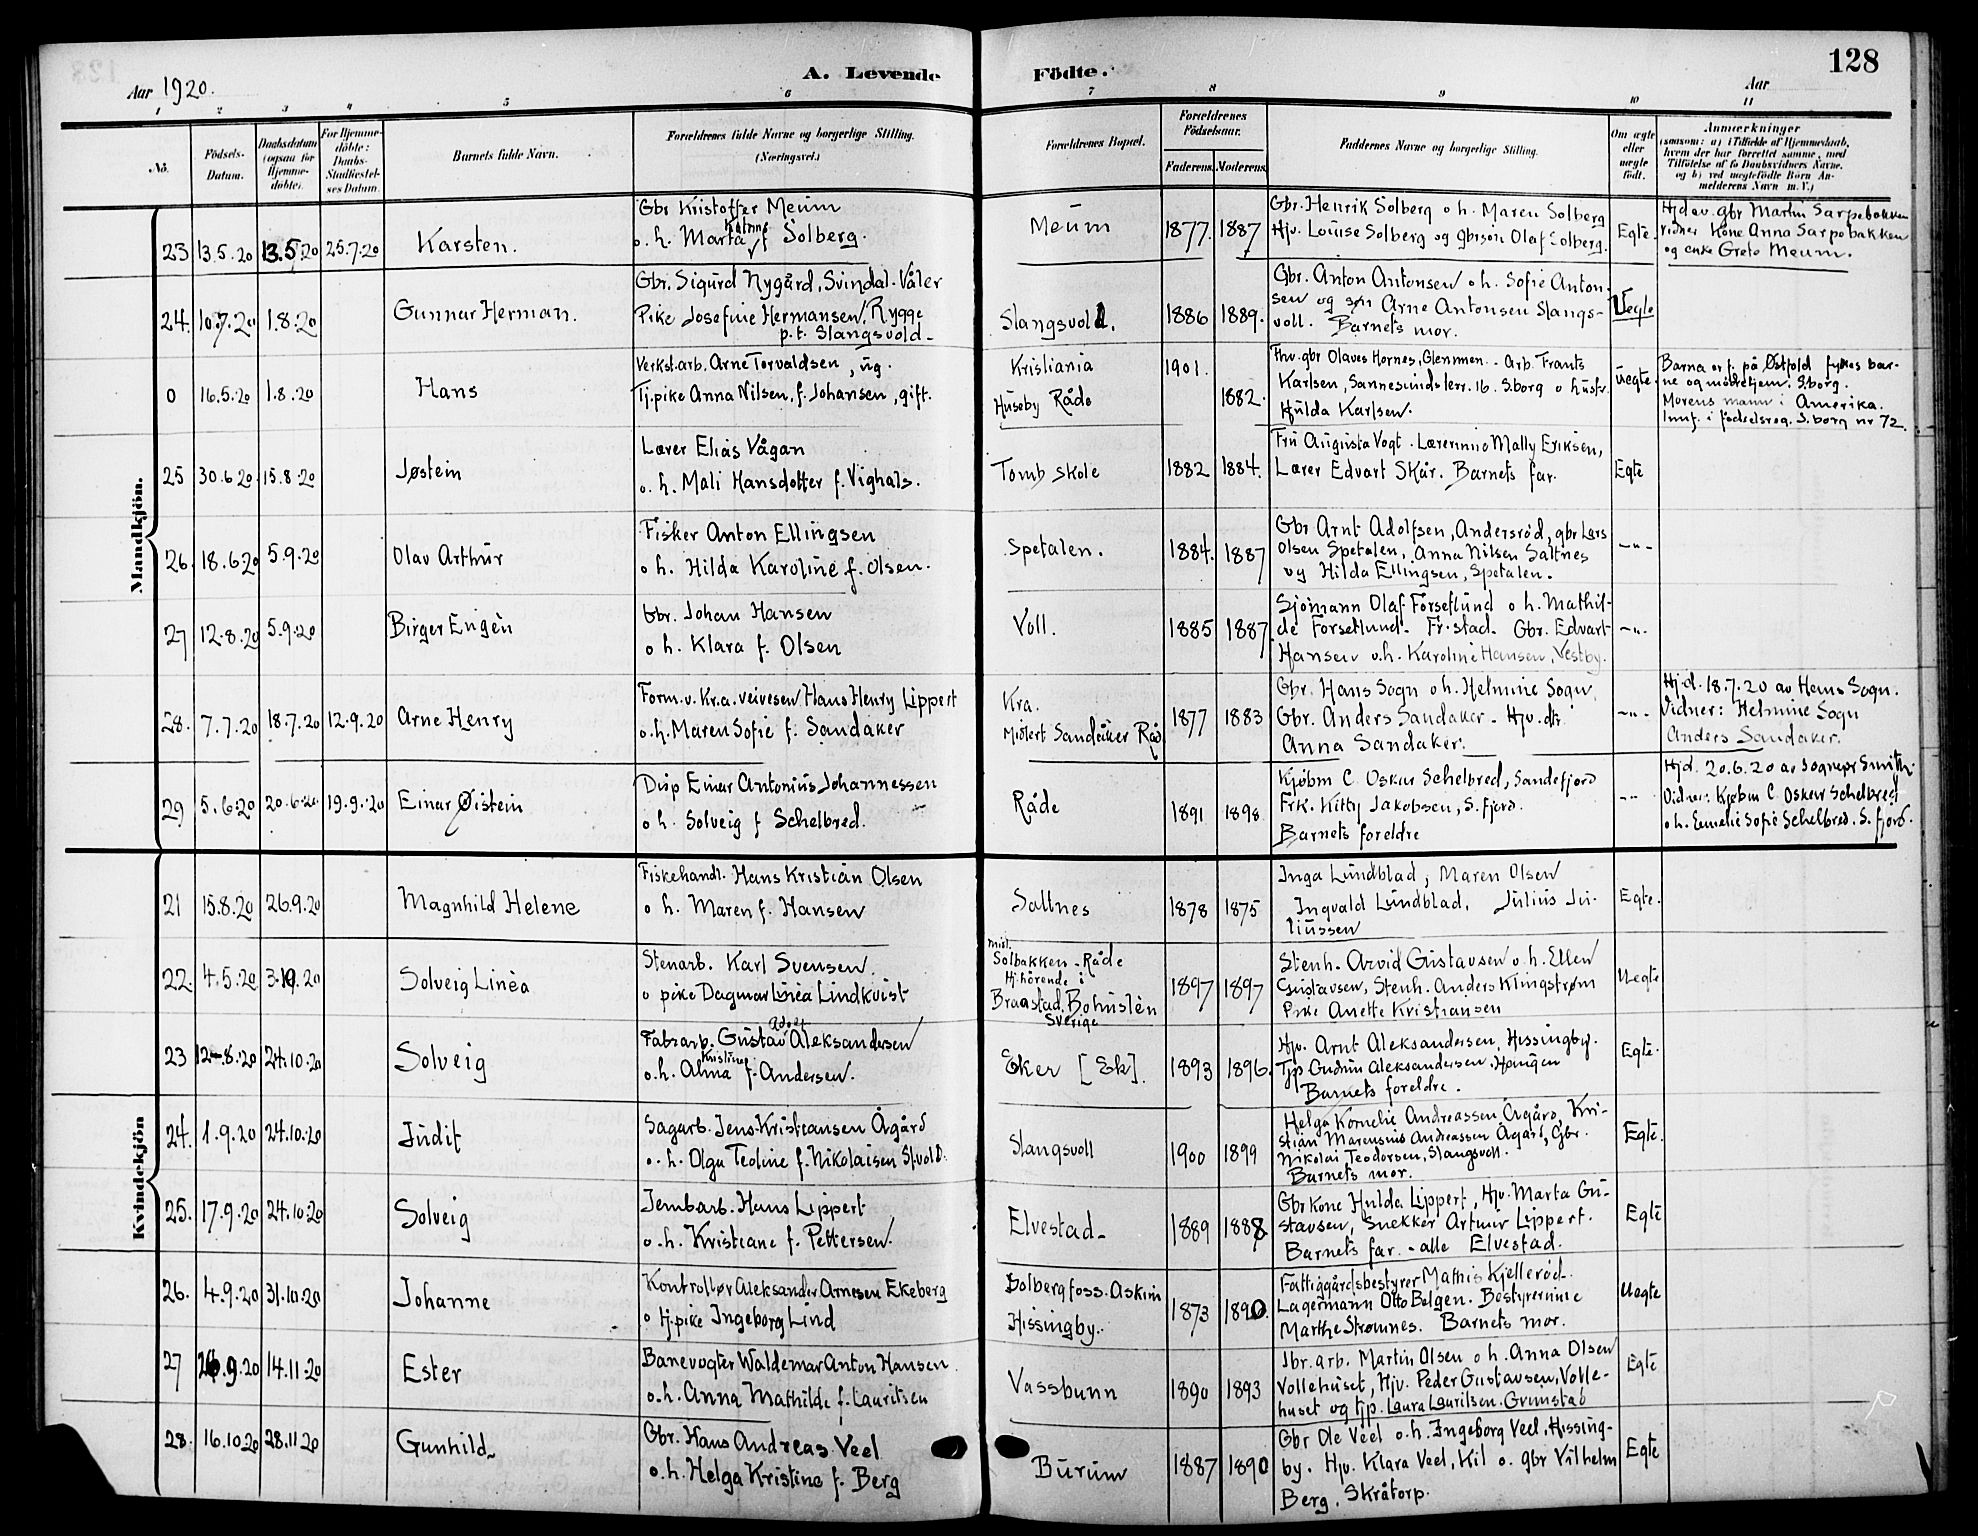 128
A. Levende Födte.
Aar 1920.
Aar
1 2 3 4 5 6 7 8 9 10 11
No.
Födsels-Datum.
Daabsdatum (ogsaa for Hjemme-döbte).
For Hjemme-döbte: Daabs-Stadfæstel-ses Datum.
Barnets fulde Navn.
Forældrenes fulde Navne og borgerlige Stilling. (Næringsvei.)
Forældrenes Bopæl.
Forældrenes Födselsaar.
Faderens. Moderens.
Faddernes Navne og borgerlige Stilling.
Om ægte eller uægte født.
Anmærkninger
(saasom: a) i Tilfælde af Hjemmedaab, hvem der har forrettet samme, med Tilföielse af to Daabsvidners Navne, og b) ved uægtefödte Börn An-melderens Navn m. V.)
Mandkjön.
23 13.5.20 13.5.20 25.7.20 Karsten.
Gbr Kristoffer Meum
o. h. Marta Katrine f Solberg.
Meum 1877. 1887
Gbr. Henrik Solberg o h. Maren Solberg
Hjv. Louise Solberg og gbrsøn Olaf Solberg.
Egte.
Hjd av. gbr Martin Sarpebakken
vidner Kone Anna Sarpebakken
og enke Grete Meum.
24. 10.7.20 1.8.20 Gunnar Herman.
Gbr. Sigurd Nygård, Svindal. Våler
Pike Josefine Hermansen, Rygge
p.t. Slangsvold
Slangsvold. 1886 1889.
Gbr. Anton Antonsen o h. Sofie Anton-
sen og søn Arne Antonsen Slangs-
voll. Barnets mor.
Uegte
0 16.5.20 1.8.20 Hans
Verkst.arb. Arne Torvaldsen, ug.
Tj.pike Anna Nilsen, f. Johansen, gift.
Kristiania 1901.
Huseby Råde 1882.
Fhv. gbr Olaves Hornes, Glemmen. Arb. Frants
Karlsen, Sannesundsterr. 16. S.borg o husfr.
Hulda Karlsen.
uegte.
Barna er f. på Østfold fylkes bar-
ne og mødrehjem. S.borg.
Morens mann i Amerika.
Innf. i fødselsreg. S.borg nr 72.
25 30.6.20. 15.8.20 Jøstein
Lærer Elias Vågan
o. h. Mali Hansdotter f. Vighals.
Tomb skole 1882 1884.
Fru Augusta Vogt. Lærerinne Mally Eriksen,
Lærer Edvart Skår. Barnets far.
Egte
26. 18.6.20 5.9.20 Olav Arthur
Fisker Anton Ellingsen
o h. Hilda Karoline f. Olsen.
Spetalen. 1884. 1887
Gbr Arnt Adolfsen, Andersrød, gbr Lars
Olsen Spetalen, Anna Nilsen Saltnes
og Hilda Ellingsen, Spetalen.
-"-
27 12.8.20 5.9.20 Birger Engèn
Gbr. Johan Hansen
o h. Klara f. Olsen
Voll. 1885 1887
Sjömann Olaf Forsetlund o h. Mathil-
de Forsetlund. Fr.stad. Gbr. Edvart
Hansen o.h. Karoline Hansen, Vestby.
-"-
28. 7.7.20 18.7.20 12.9.20 Arne Henry
Form. v. Kr.a. veivesen Hans Henry Lippert
o. h. Maren Sofie f. Sandaker
Kra.
Midlert Sandaker Råd. 1877 1883
Gbr. Hans Sogn o h. Helmine Sogn,
Gbr. Anders Sandaker. Hjv. dtr.
Anna Sandaker.
-"-
Hj.d. 18.7.20 av Hans Sogn.
Vidner: Helmine Sogn
Anders Sandaker.
29 5.6.20 20.6.20 19.9.20 Einar Øistein
Disp Einar Antonius Johannessen
o h. Solveig f Schelbred.
Råde 1891 1898
Kjøbm C. Oskar Schelbred, Sandefjord
Frk. Kitty Jakobsen, S.fjord.
Barnets foreldre
-"-
Hjd. 20.6.20 av sognepr Smith.
Vidner: Kjøbm C. Oskar Schelbred
o h. Emelie Sofie Schelbred. S. fjord.
Kvindekjön
21 15.8.20 26.9.20 Magnhild Helene
Fiskehandl. Hans Kristian Olsen
o h. Maren f. Hansen
Saltnes 1878 1875
Inga Lundblad, Maren Olsen
Ingvald Lundblad, Julius Ju-
liussen
Egte.
22. 4.5.20 3.10.20 Solveig Linèa
Stenarb. Karl Svensen.
o pike Dagmar Linèa Lindkvist
midl.
Solbakken - Råde
Hj.hörende i
Braastad, Bohuslèn
Sverige
1897 1897
Stenh. Arvid Gustavsen o. h. Ellen
Gustavsen, Stenh. Anders Klingstrøm
Pike Anette Kristiansen
Uegte
23 12.8.20 24.10.20 Solveig
Fabr.arb. Gustav Adolf Aleksandersen
o. h. Alma Kristine f. Andersen.
Eker [Ek]. 1893 1896.
Hjv. Arnt Aleksandersen, Hissingby.
Tjp Gudrun Aleksandersen, Haugen
Barnets foreldre.
Egte.
24. 1.9.20 24.10.20 Judit
Sagarb. Jens Kristiansen Ågård
o. h. Olga Teoline f. Nikolaisen Sl.vold.
Slangsvoll 1900 1899
Helga Kornelie Andreassen Ågård, Kri-
stian Marensius Andreassen Ågård, Gbr.
Nikolai Teodorsen, Slangsvoll.
Barnets mor.
Egte.
25. 17.9.20 24.10.20 Solveig
Jernbarb. Hans Lippert
o. h. Kristiane f. Pettersen.
Elvestad 1889 1888
Gbrkone Hulda Lippert, Hjv. Marta Gu-
stavsen, Snekker Artur Lippert.
Barnets far. - alle Elvestad.
Egte
26. 4.9.20 31.10.20 Johanne
Kontrollør Aleksander Arnesen Ekeberg
o tj.pike Ingeborg Lind
Solbergfoss. Askim
Hissingby. 1873 1890.
Fattiggårdsbestyrer Mathis Kjellerød.
Lagermann Otto Belgen. Bestyrerinne
Marthe Strømnes. Barnets mor.
Uegte
27 26.9.20 14.11.20 Ester
Banevogter Waldemar Anton Hansen
o. h. Anna Mathilde f. Lauritsen
Vassbunn 1890 1893
Jbr.arb. Martin Olsen o h. Anna Olsen
Vollehuset, Hjv. Peder Gustavsen, Volle-
huset og tjp. Laura Lauritsen. Grimstad
Egte
28. 16.10.20 28.11.20 Gunhild
Gbr. Hans Andreas Veel
o. h. Helga Kristine f. Berg
Burum 1887 1890
Gbr Ole Veel o. h. Ingeborg Veel, Hissing-
by. Hjv. Klara Veel, Kil o. gbr Vilhelm
Berg, Skråtorp.
Egte